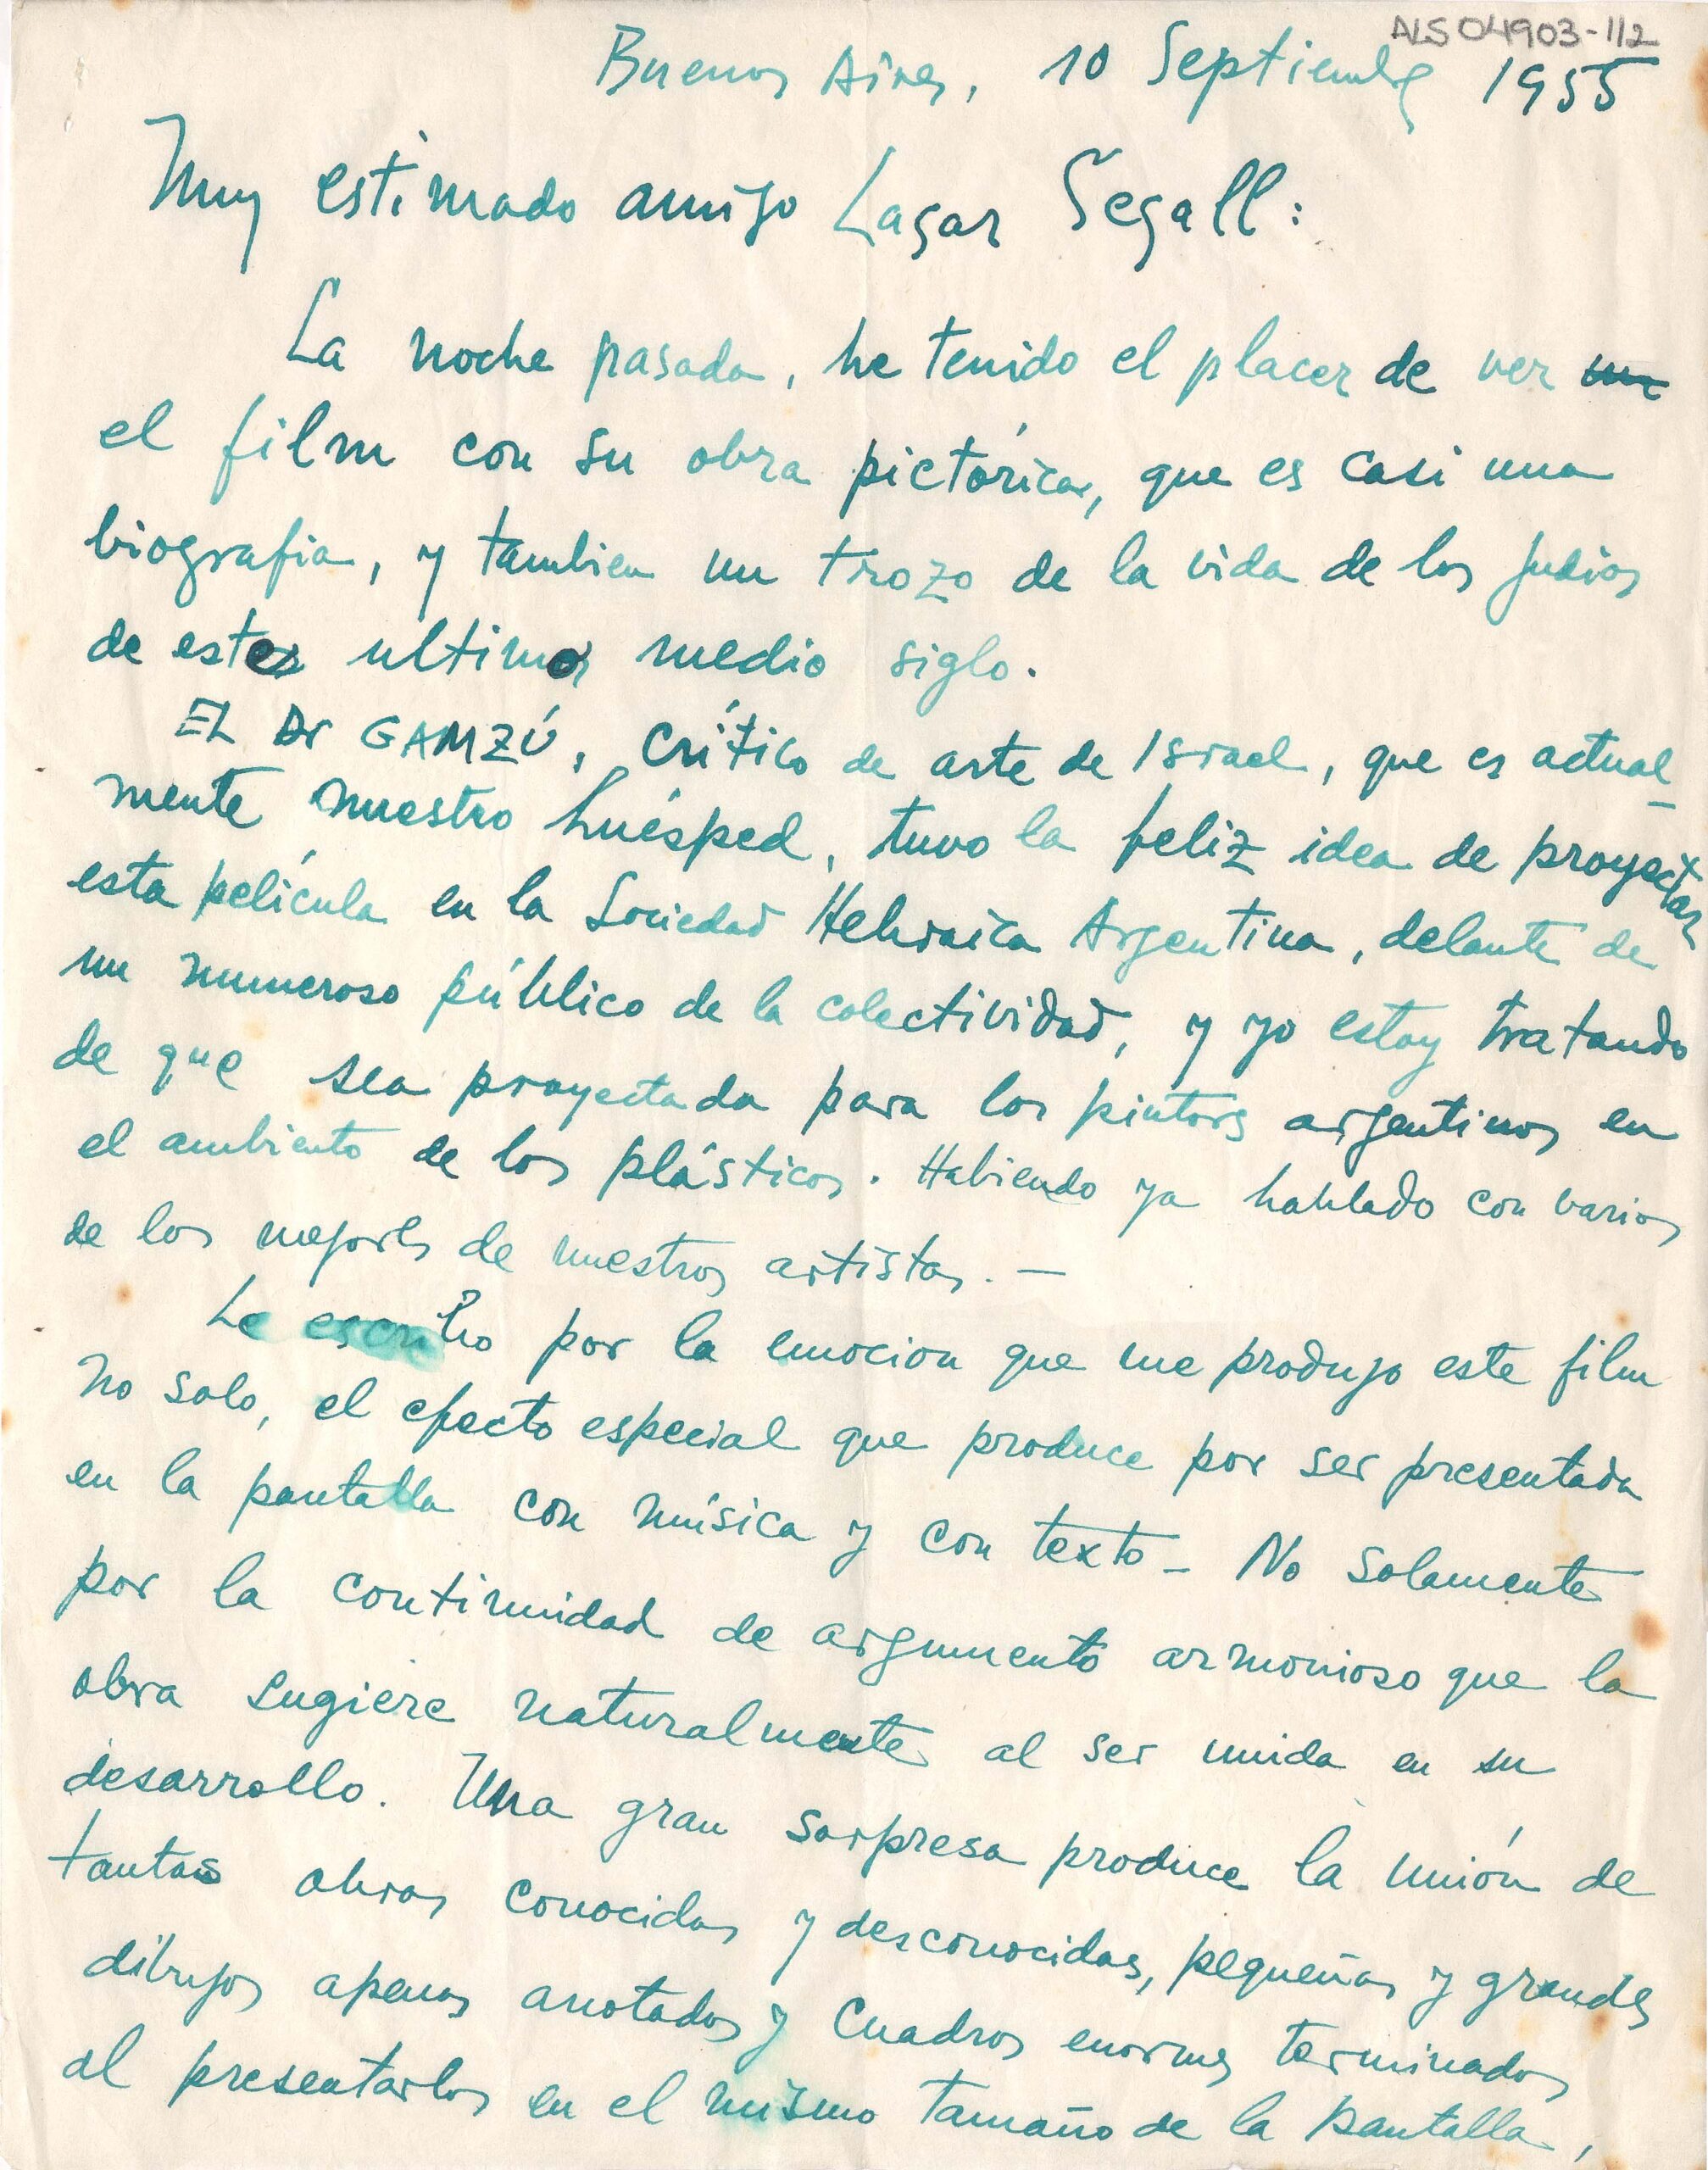 ALS 04903-1/2
Buenos Aires, 10 Septiembre 1955
Muy estimado amigo Lasar Segall:
La noche pasada, he tenido el placer de ver
el film con su obra pictórica, que es casi una
biografia, y tambien un trozo de la vida de los judios
de estos ultimos medio siglo.
EL Dr GAMZÚ, crítico de arte de Israel, que es actual-
mente nuestro huésped, tuvo la feliz idea de proyectar
esta película en la Sociedad Hebraica Argentina, delante de
un numeroso público de la colectividad, y yo estoy tratando
de que sea proyectada para los pintores argentinos en
el ambiente de los plásticos. Habiendo ya hablado con varios
de los mejores de nuestros artistas. —
Le escribo por la emocion que me produjo este film
no solo, el efecto especial que produce por ser presentada
en la pantalla con música y con texto - No solamente
por la continuidad de argumento armonioso que la
obra sugiere naturalmente al ser unida en su
desarrollo. Una gran sorpresa produce la unión de
tantas obras conocidas y desconocidas, pequeñas y grandes
dibujos apenas anotados y cuadros enormes terminados,
al presentarlos en el mismo tamaño de la pantalla,